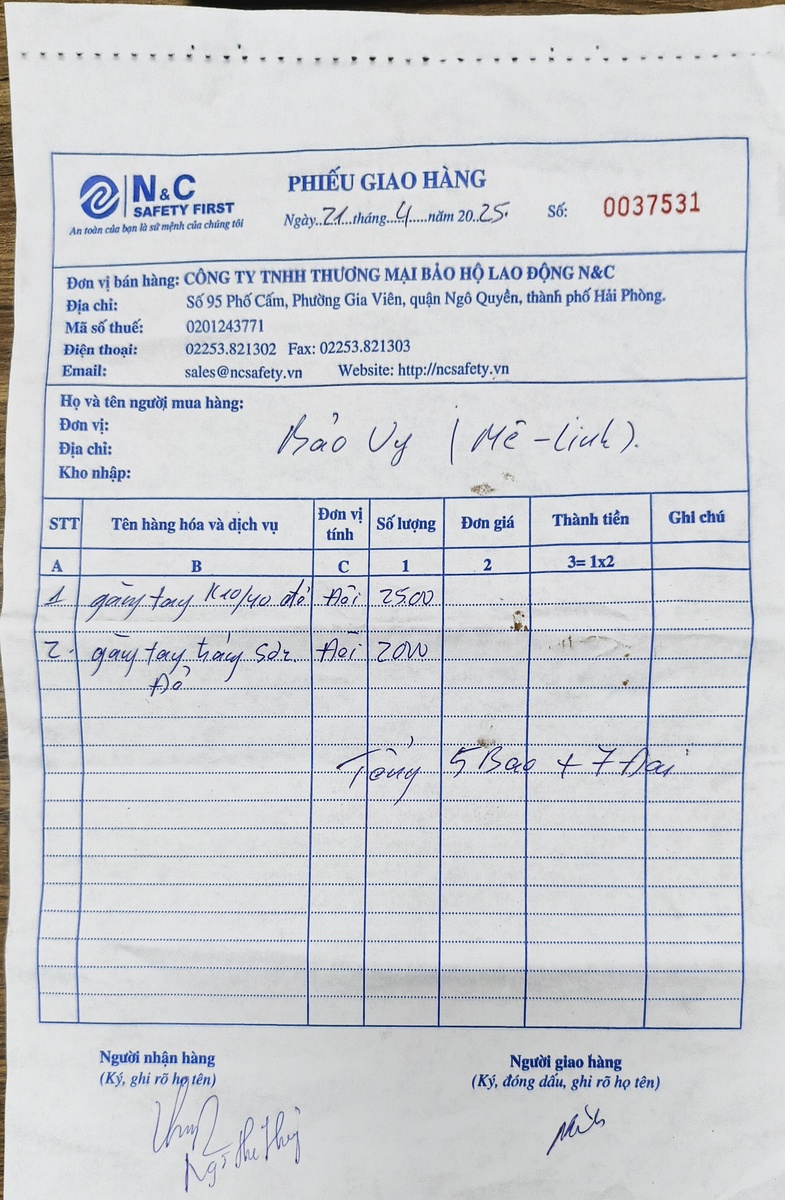 N&C
SAFETY FIRST
An toàn của bạn là sứ mệnh của chúng tôi
PHIẾU GIAO HÀNG
Ngày..21...tháng..4.....năm 20..25.
Số: 0037531
Đơn vị bán hàng: CÔNG TY TNHH THƯƠNG MẠI BẢO HỘ LAO ĐỘNG N&C
Địa chỉ: Số 95 Phố Cấm, Phường Gia Viên, quận Ngô Quyền, thành phố Hải Phòng.
Mã số thuế: 0201243771
Điện thoại: 02253.821302 Fax: 02253.821303
Email: sales@ncsafety.vn Website: http://ncsafety.vn
Họ và tên người mua hàng:
Đơn vị:
Địa chỉ: Bảo Vy (Mê-Linh).
Kho nhập:
STT Tên hàng hóa và dịch vụ Đơn vị tính Số lượng Đơn giá Thành tiền Ghi chú
A B C 1 2 3= 1x2
1 găng tay K10/40 đỏ Đôi 2500
2. găng tay Đôi 2000
Đỏ
Tổng 5 Bao + 7 Đai
Người nhận hàng
(Ký, ghi rõ họ tên)
Người giao hàng
(Ký, đóng dấu, ghi rõ họ tên)